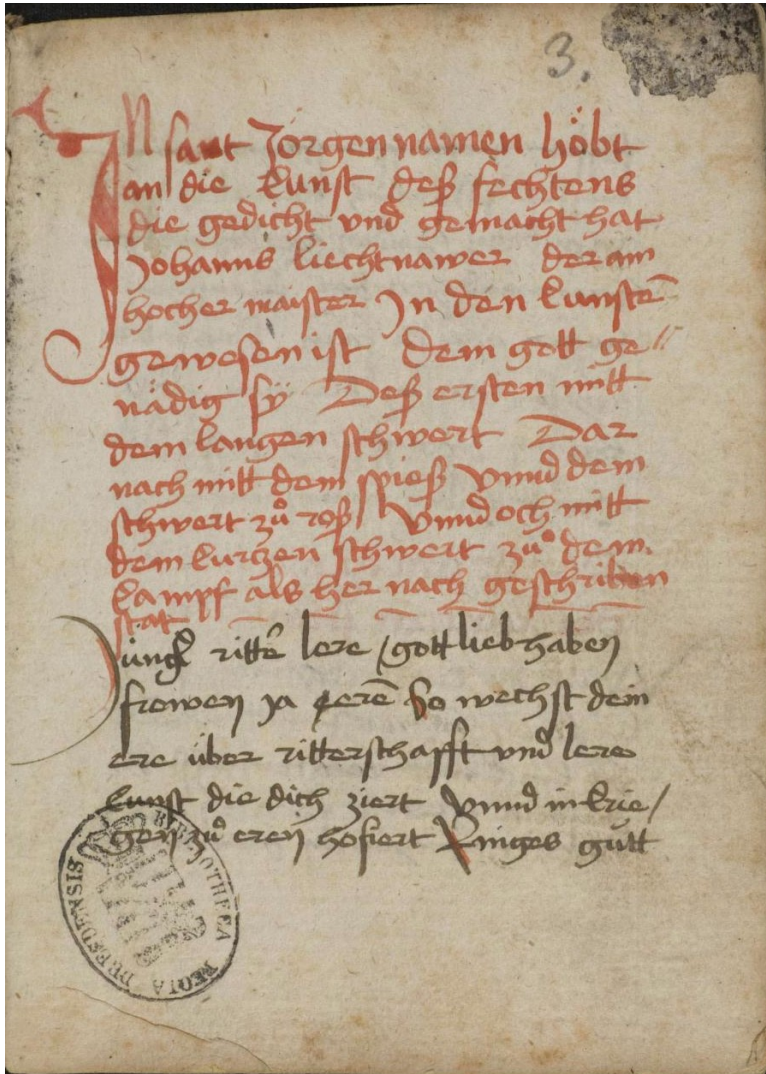 3.
IN sant Jörgen namen höbt
an die kunst deß fechtens
die gedicht vnd gemacht hat
Johanns liechtnawer der ain
hocher maister In den kunstē
gewesen ist dem gott ge//
nädig sÿ Deß ersten mitt
dem langen schwert Dar
nach mitt dem spieß Vnnd dem
schwert zů roß Vnnd och mitt
dem kurtzen schwert zů dem
kampf als her nach geschriben
stat
Jungk ritter lere / gott lieb haben
frowen ja eerē So wechst dein
ere über ritterschafft vnd lere
kunst die dich ziert Vnnd in krie/
gen zů eren hofiert Ringes gutt
BIBLIOTHECA REGIA DRESDENSIS